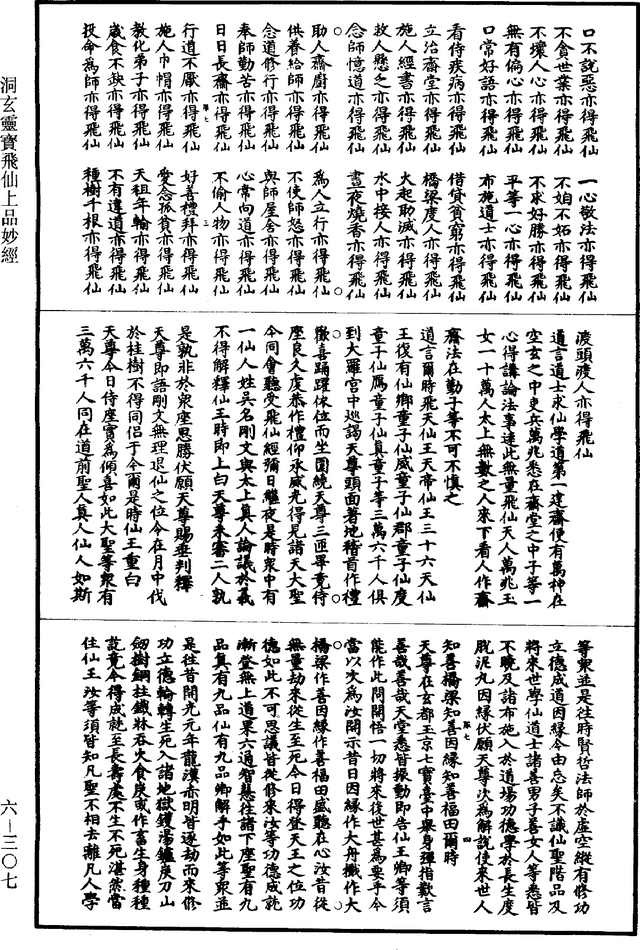 口不說惡亦得飛仙 一心敬法亦得飛仙
不貪世業亦得飛仙 不姤不妬亦得飛仙
不壞人心亦得飛仙 不求好勝亦得飛仙
無有偏心亦得飛仙 平等一心亦得飛仙
口常好語亦得飛仙 布施道士亦得飛仙
看侍疾病亦得飛仙 借貸貧窮亦得飛仙
立治齋堂亦得飛仙 橋梁度人亦得飛仙
施人經書亦得飛仙 火起助滅亦得飛仙
救人懸乏亦得飛仙 水中接人亦得飛仙
念師憶道亦得飛仙 晝夜燒香亦得飛仙
助人齋廚亦得飛仙 為人立行亦得飛仙
供養給師亦得飛仙 不使師怒亦得飛仙
念道修行亦得飛仙 與師屋舍亦得飛仙
奉師勤苦亦得飛仙 心常向道亦得飛仙
日日長齋亦得飛仙 不偷人物亦得飛仙
第七 三
行道不厭亦得飛仙 好善禮拜亦得飛仙
施人巾帽亦得飛仙 愛念孤貧亦得飛仙
教化弟子亦得飛仙 天租年輸亦得飛仙
歲食不缺亦得飛仙 不有違道亦得飛仙
投命為師亦得飛仙 種樹千根亦得飛仙
渡頭渡人亦得飛仙
道言道士求仙學道第一建齋便有萬神在
空玄之中吏兵萬兆悉在齋堂之中子等一
心得講論法事達此無量飛仙天人萬兆玉
女一十萬人太上無數之人來下看人作齋
齋法在勤子等不可不慎之
道言爾時飛天仙王天帝仙王三十六天仙
王復有仙鄉童子仙威童子仙郡童子仙度
童子仙鴈童子仙真童子等三萬六千人俱
到大羅宮中巡謁天尊頭面著地稽首作禮
歡喜踊躍依位而坐圍繞天尊三匝畢竟侍
座良久虔恭作禮仰承威光得見諸天大聖
今同會聽受飛仙經彌日繼夜是時衆中有
一仙人姓吳名剛文與太上真人論議於義
不得解釋仙王時即上白天尊未審二人孰
是孰非於衆座思勝伏願天尊賜垂判釋
天尊即語剛文無理退仙之位令在月中伐
於桂樹不得同侶于今爾是時仙王重白
天尊今日侍座實為傾喜如此大聖等衆有
三萬六千人同在道前聖人真人仙人如斯
等衆並是往時賢哲法師於虛空縱有修功
立德成道因緣今由忘矣不識仙聖階品及
將來世學仙道士諸善男子善女人等悉皆
不曉及諸布施入於道場功德學於長生度
脫泥丸因緣伏願天尊次為解說使來世人
知善橋梁知善因緣知善福田爾時
第七 四
天尊在玄都玉京七寶臺中舉身彈指歎言
善哉善哉天堂悉皆振動即告仙王鄉等須
能作此問開悟一切將來後世甚為要乎今
當以次為汝開示昔日因緣作大舟檝作大
橋梁作善因緣作善福田感聽在心汝昔從
無量劫來從生至死今日得登天王之位功
德如此不可思議皆從修來汝等功德成就
漸登無上道果六通智慧往諸下座聖有九
品真有九品仙有九品鄉解乎如此等衆並
是往昔開光元年龍漢赤明皆逐劫而來修
功立德輪轉生死入諸地獄鑊湯鑪炭刀山
劒樹銅柱鐵牀吞火食炭或作畜生身種種
託竟今得成就至長壽處不生不死湛然當
住仙王汝等須皆知凡聖不相去離凡人學
洞玄靈寶飛仙上品妙經
六—三〇七